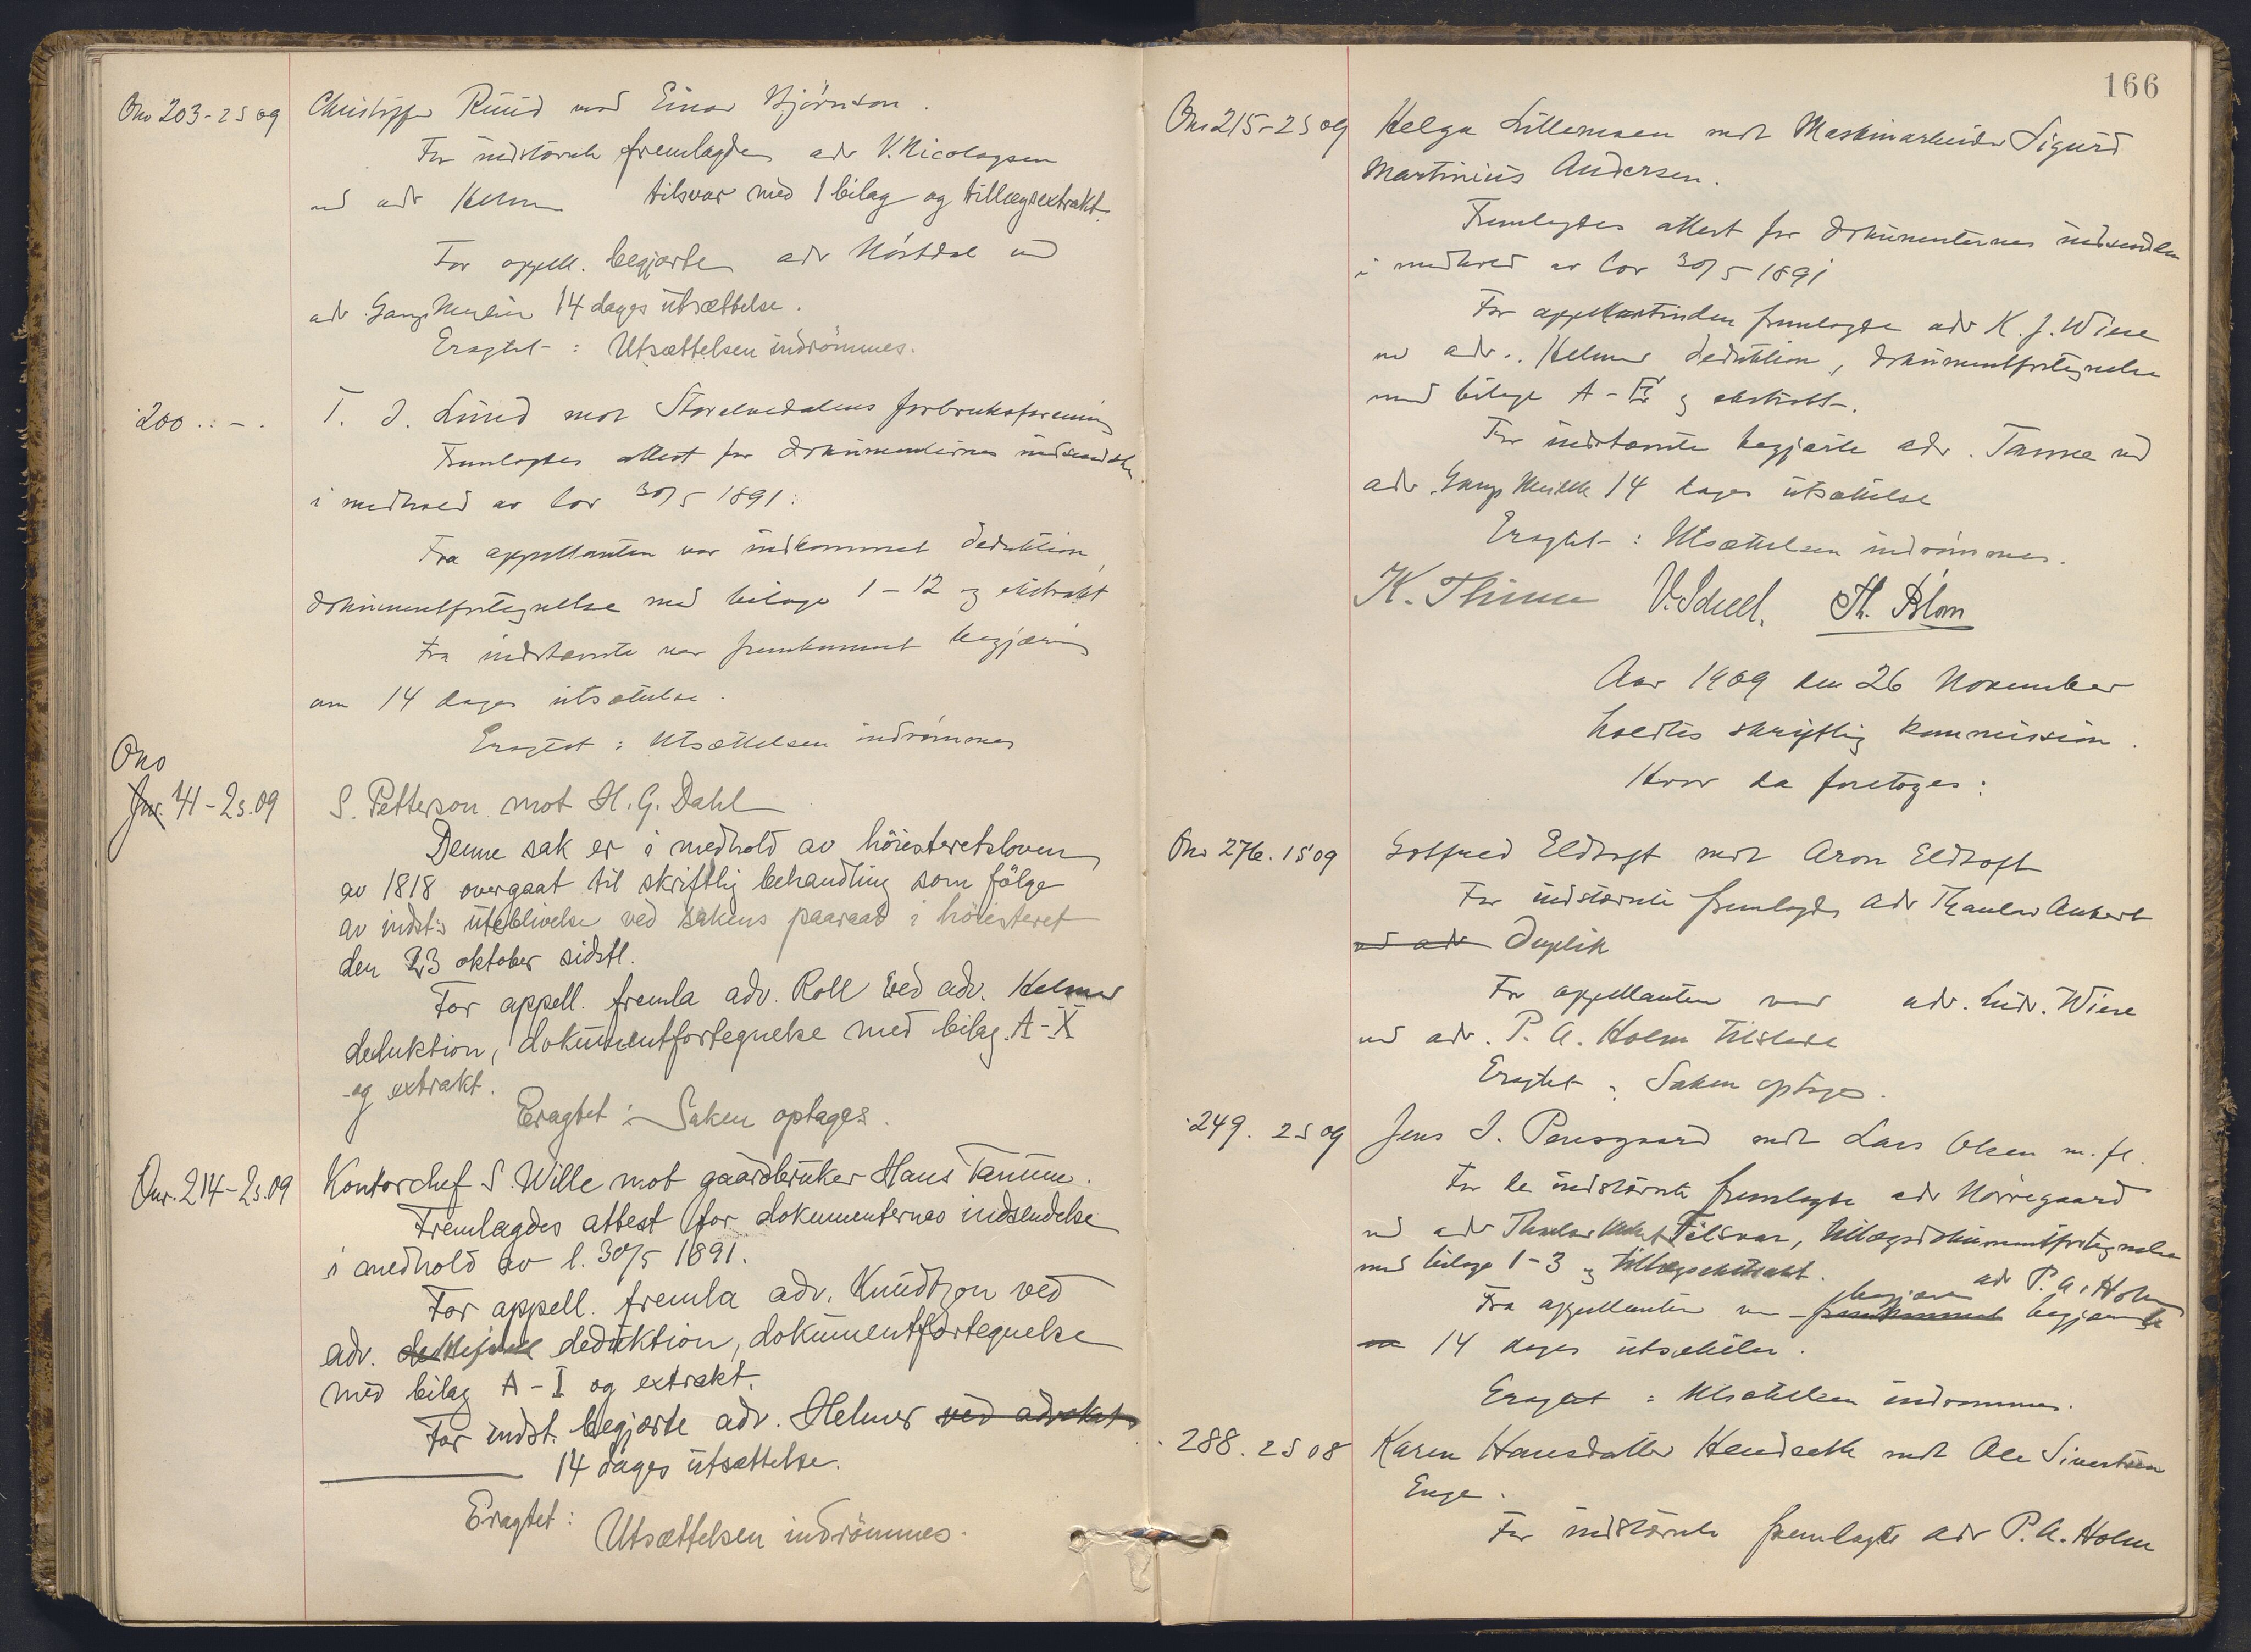 Ono 203-2S 09 Christoffer Ruud mot Einar Bjørnson.
For indstævnte fremlagdes adv V. Nicolaysen
ved adv Helmer tilsvar med 1 bilag og tillægsextrakt.
For appell. begjærte adv Mostdal ved
adv 14 dages utsættelse.
Eragtet: Utsættelsen indrømmes.
200 . : - . T. J. Lund mot Storelvedalens forbruksforening
Fremlagdes attest for dokumenternes indsendelse
i medhold av lov 30/5 1891.
Fra appellanten var indkommet deduktion,
dokumentfortegnelse med bilage 1-12 og ekstrakt
Fra indstævnte var fremkommet begjæring
om 14 dages utsættelse.
Eragtet: Utsættelsen indrømmes
Ono
Jnr. 41-2s.09 S. Petterson mot H. G. Dahl
Denne sak er i medhold av höiesteretsloven
av 1818 overgaat til skriftlig behandling som fölge
av indst:s uteblivelse ved sakens paaraab i höiesteret
den 23 oktober sidstl.
For appell. fremla adv. Roll ved adv. Helmer
deduktion, dokumentfortegnelse med bilag A-X
og extrakt.
Eragtet: Saken optages.
Onr. 214-2s.09 Kontorchef S. Wille mot gaardbruker Hans Tanum.
Fremlagdes attest for dokumenternes indsendelse
i medhold av l. 30/5 1891.
For appell. fremla adv. Knudtzon ved
adv. deduktion, dokumentfortegnelse
med bilag A-I og extrakt.
For indst. begjærte adv. Helmer ved advokat
14 dages utsættelse.
Eragtet: Utsættelsen indrömmes.
166
Ono 215-2S 09 Helga Lillemoen mot Maskinarbeider Sigurd
Martinius Andersen.
Fremlagdes attest for dokumenternes indsendelse
i medhold av lov 30/5 1891
For appellantinden fremlagde adv K. J. Wiese
ved adv. Helmer deduktion, dokumentfortegnelse
med bilage A- og ekstrakt.
For indstævnte begjærte adv. Tanne ved
adv. 14 dages utsættelse
Eragtet: Utsættelsen indrømmes.
K. Thinn V. Scheel. Th. Blom
Aar 1909 den 26 November
holdtes skriftlig kommission.
Hvor da foretoges:
Ono 276. 1S 09 Gotfred Eldtoft mot Aron Eldtoft
For indstævnte fremlagdes adv Thaulow Ankert
ved adv Duplik
For appellanten var adv. Ludv. Wiese
ved adv. P. A. Holm tilstede
Eragtet: Saken optages.
249. 2S 09 Jens J. Pensgaard mot Lars Olsen m. fl.
For de indstævnte fremlagde adv Nørregaard
ved adv Thaulow Tilsvar, tillægsdokumentfortegnelse
med bilage 1-3 og tillægsekstrakt.
begjærte adv P. A. Holm
Fra appellanten var fremkommet begjæring
om 14 dages utsættelse.
Eragtet: Utsættelsen indrømmes.
288. 2S 08 Karen Hansdatter Hendseth mot Ole Sivertsen
Enge.
For indstævnte fremlagde adv P. A. Holm